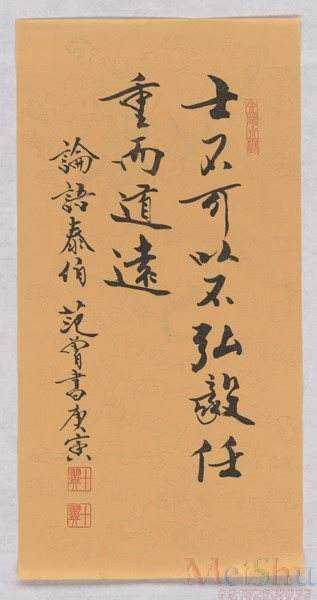 士不可以不弘毅任
重而道遠
論語泰伯 范曾書庚寅
十翼
十翼
MeiShu